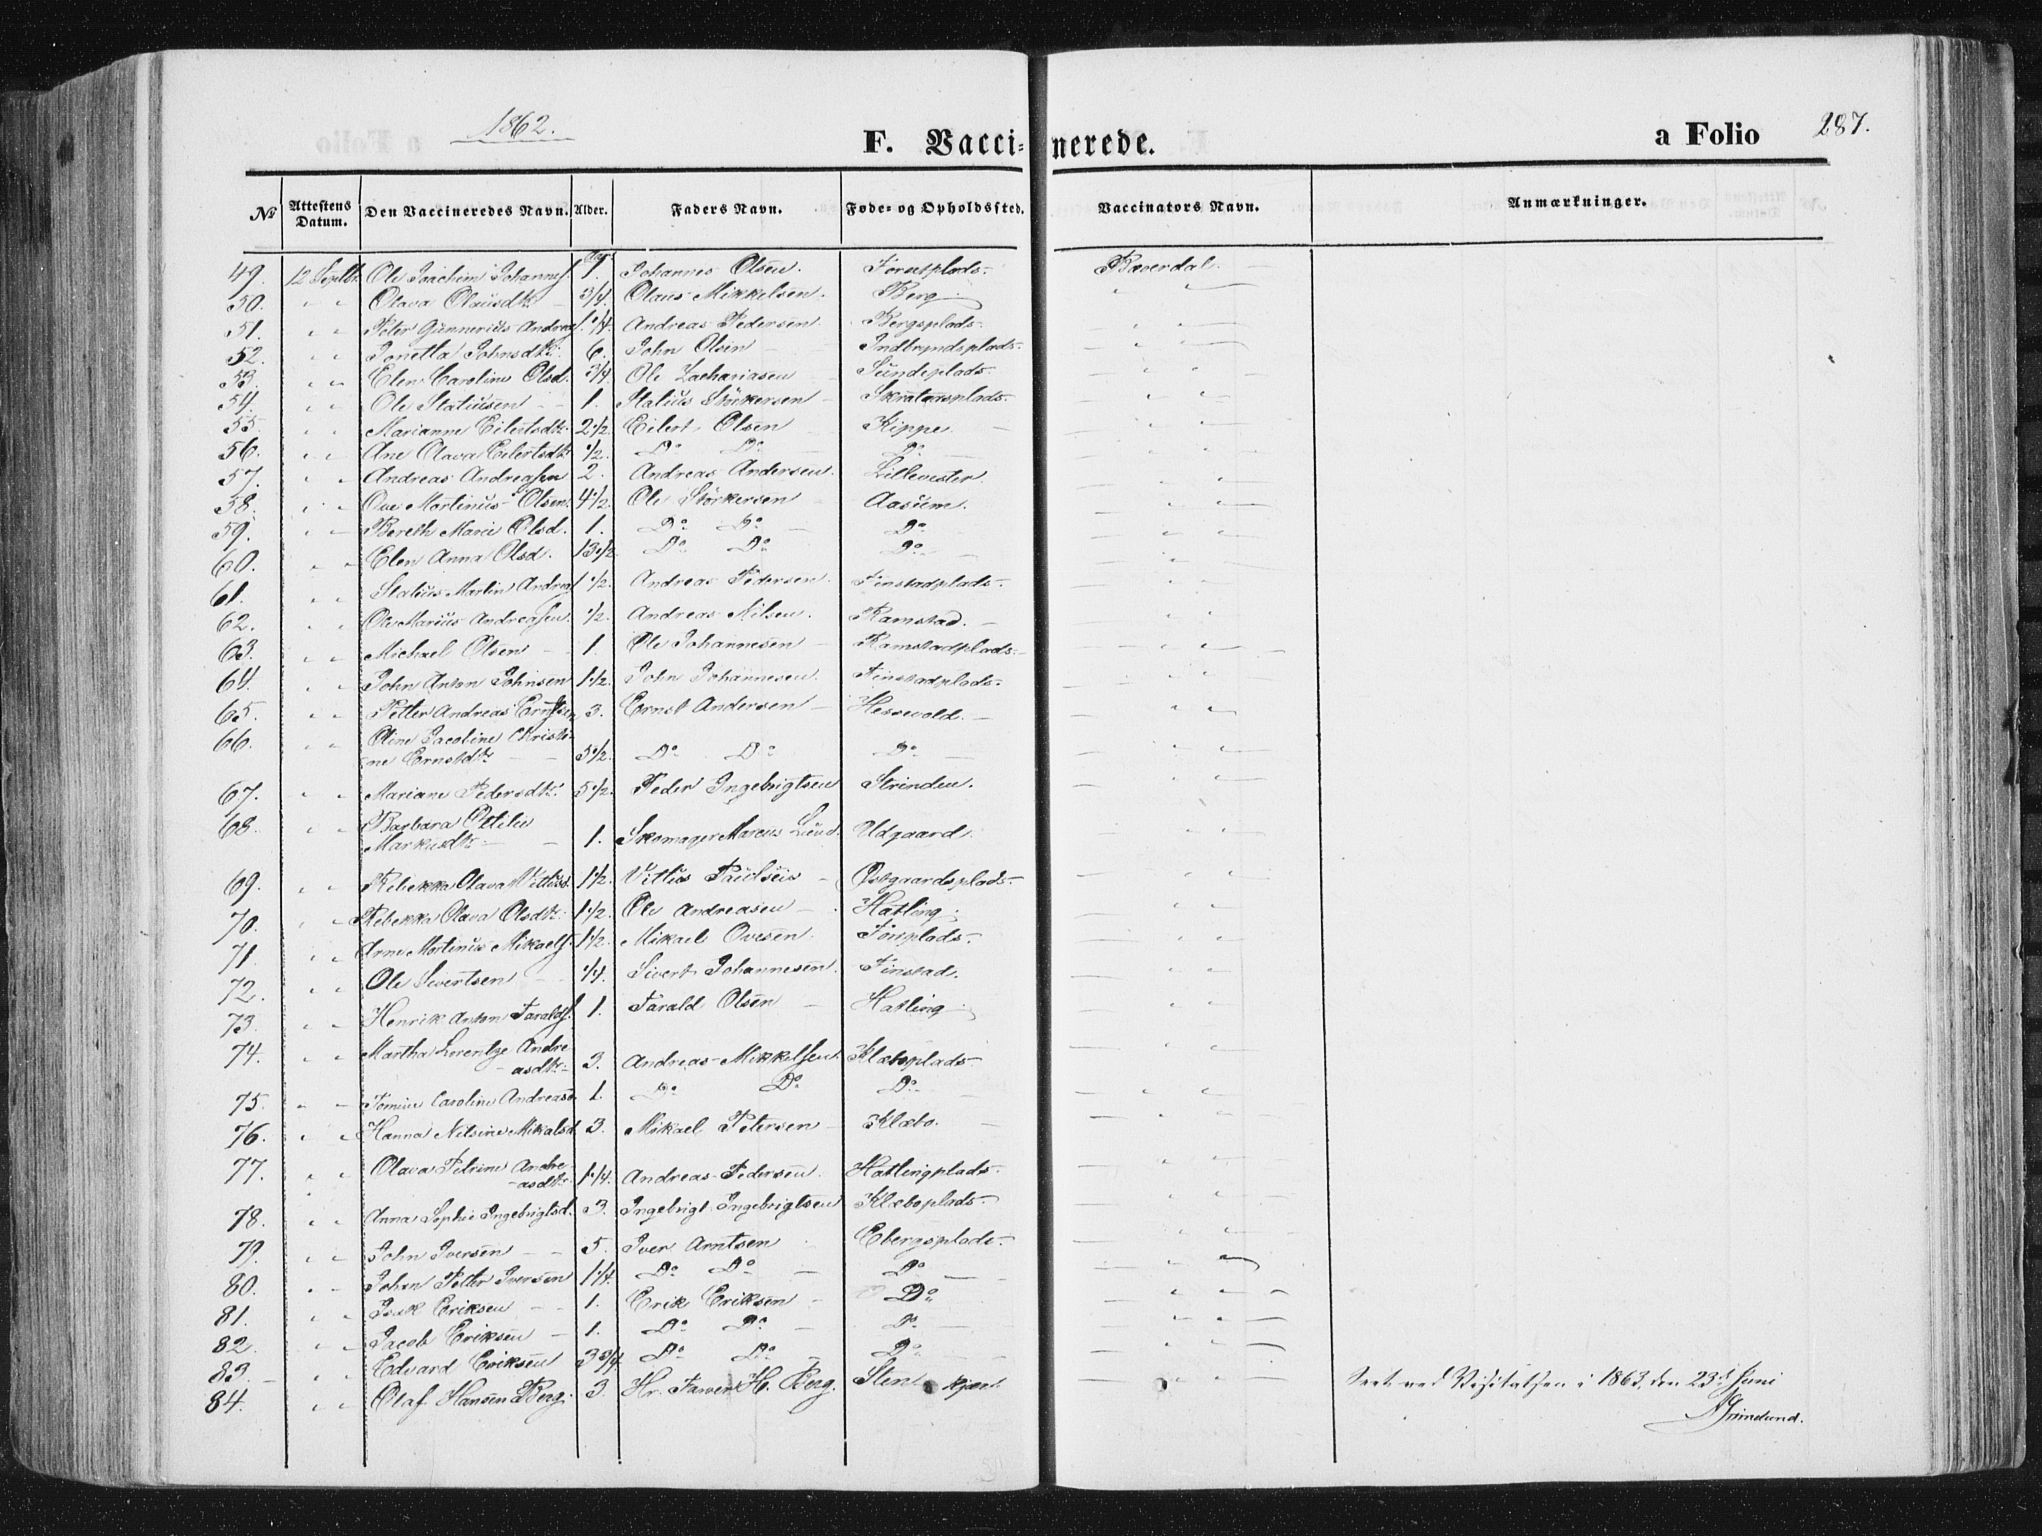 1862.
F. Vaccinerede.
a Folio 287.
No Attestens Datum. Den Vaccineredes Navn. Alder. Faders Navn. Føde- og Opholdssted. Vaccinators Navn. Anmærkninger.
49. 12 Septbr. Ole Joachim Johannesf. 1. Johannes Olsen. Baverdal.
50. " " Olava Olausdtr. 3/4. Olaus Mikkelsen. Berg " "
51. " " Peter Gunnerius Andreasf. 1/4. Andreas Pedersen. Bergsplads. " "
52. " " Jonetta Johnsdtr. 6. John Olsen Indbryndsplads. " "
53. " " Elen Caroline Olsd. 3/4. Ole Zachariasen Sundsplads. " "
54. " " Ole Statiusen 1. Statius Störkersen " "
55. " " Marianne Eilertsdtr. 2 1/2. Eilert Olsen Kippe " "
56. " " Ane Olava Eilertsdtr. 1/2. Do Do Do " "
57. " " Andreas Andreasen 2. Andreas Andersen. Lillevester " "
58. " " Ove Martinus Olsen. 4 1/2. Ole Störkersen Aasum. " "
59. " " Bereth Marie Olsd. 1. Do Do Do " "
60. " " Elen Anna Olsd. 13 1/2. Do Do Do " "
61. " " Statius Martin Andreasf. 1/2. Andreas Pedersen. Finstadplads. " "
62. " " Ole Marius Andreasen 1/2. Andreas Nilsen. Ramstad. " "
63. " " Michael Olsen 1. Ole Johannesen Ramstadplads. " "
64. " " John Anton Johnsen 1 1/2. John Johannesen. Finstadplads. " "
65. " " Petter Andreas Ernstsen 3. Ernst Andersen Hessevold. " "
66. " " Oline Jacoline Kristi-
ne Ernstdtr. 5 1/2. Do Do Do " "
67. " " Mariane Pedersdtr. 5 1/2. Peder Ingebrigtsen Strinden. " "
68. " " Barbara Ottilie
Markusdtr. 1. Skomager Marcus Lund. Udgaard. " "
69. " " Rebekka Olava Vitlusd. 1 1/2. Vitlus Paulsen Östgaardsplads. " "
70. " " Rebekka Olava Olsdtr. 1 1/2. Ole Andreasen Hatling. " "
71. " " Arne Martinus Mikaelf. 1 1/2. Mikael Ovesen. " "
72. " " Ole Sivertsen 1/4. Sivert Johannesen. Finstad. " "
73. " " Henrik Anton Taraldsf. 1. Tarald Olsen Hatling " "
74. " " Martha Lorentze Andre-
asdtr. 3. Andreas Mikkelsen. Klæboplads. " "
75. " " Caroline Andreasd. 1. Do Do Do " "
76. " " Hanna Nilsine Mikalsd. 3. Mikael Petersen Klæbo. " "
77. " " Olava Petrine Andre-
asdtr. 1 1/4. Andreas Pedersen. Hatlingplads. " "
78. " " Anna Sophie Ingebrigtsd. 3. Ingebrigt Ingebrigtsen Klæboplads. " "
79. " " John Iversen 5. Iver Arntsen Ebergsplads. " "
80. " " Johan Peter Iversen 1 1/4. Do Do Do " "
81. " " Isak Eriksen 1. Erik Eriksen Do " "
82. " " Jacob Eriksen 1. Do Do Do " "
83. " " Edvard Eriksen 3 3/4. Do Do Do " "
84. " " Olaf Hansen Berg. 3. Hr. Farver H. Berg. Stenkjær " "
Seet ved Visitatsen i 1863, den 23de Juni
Grimelund.